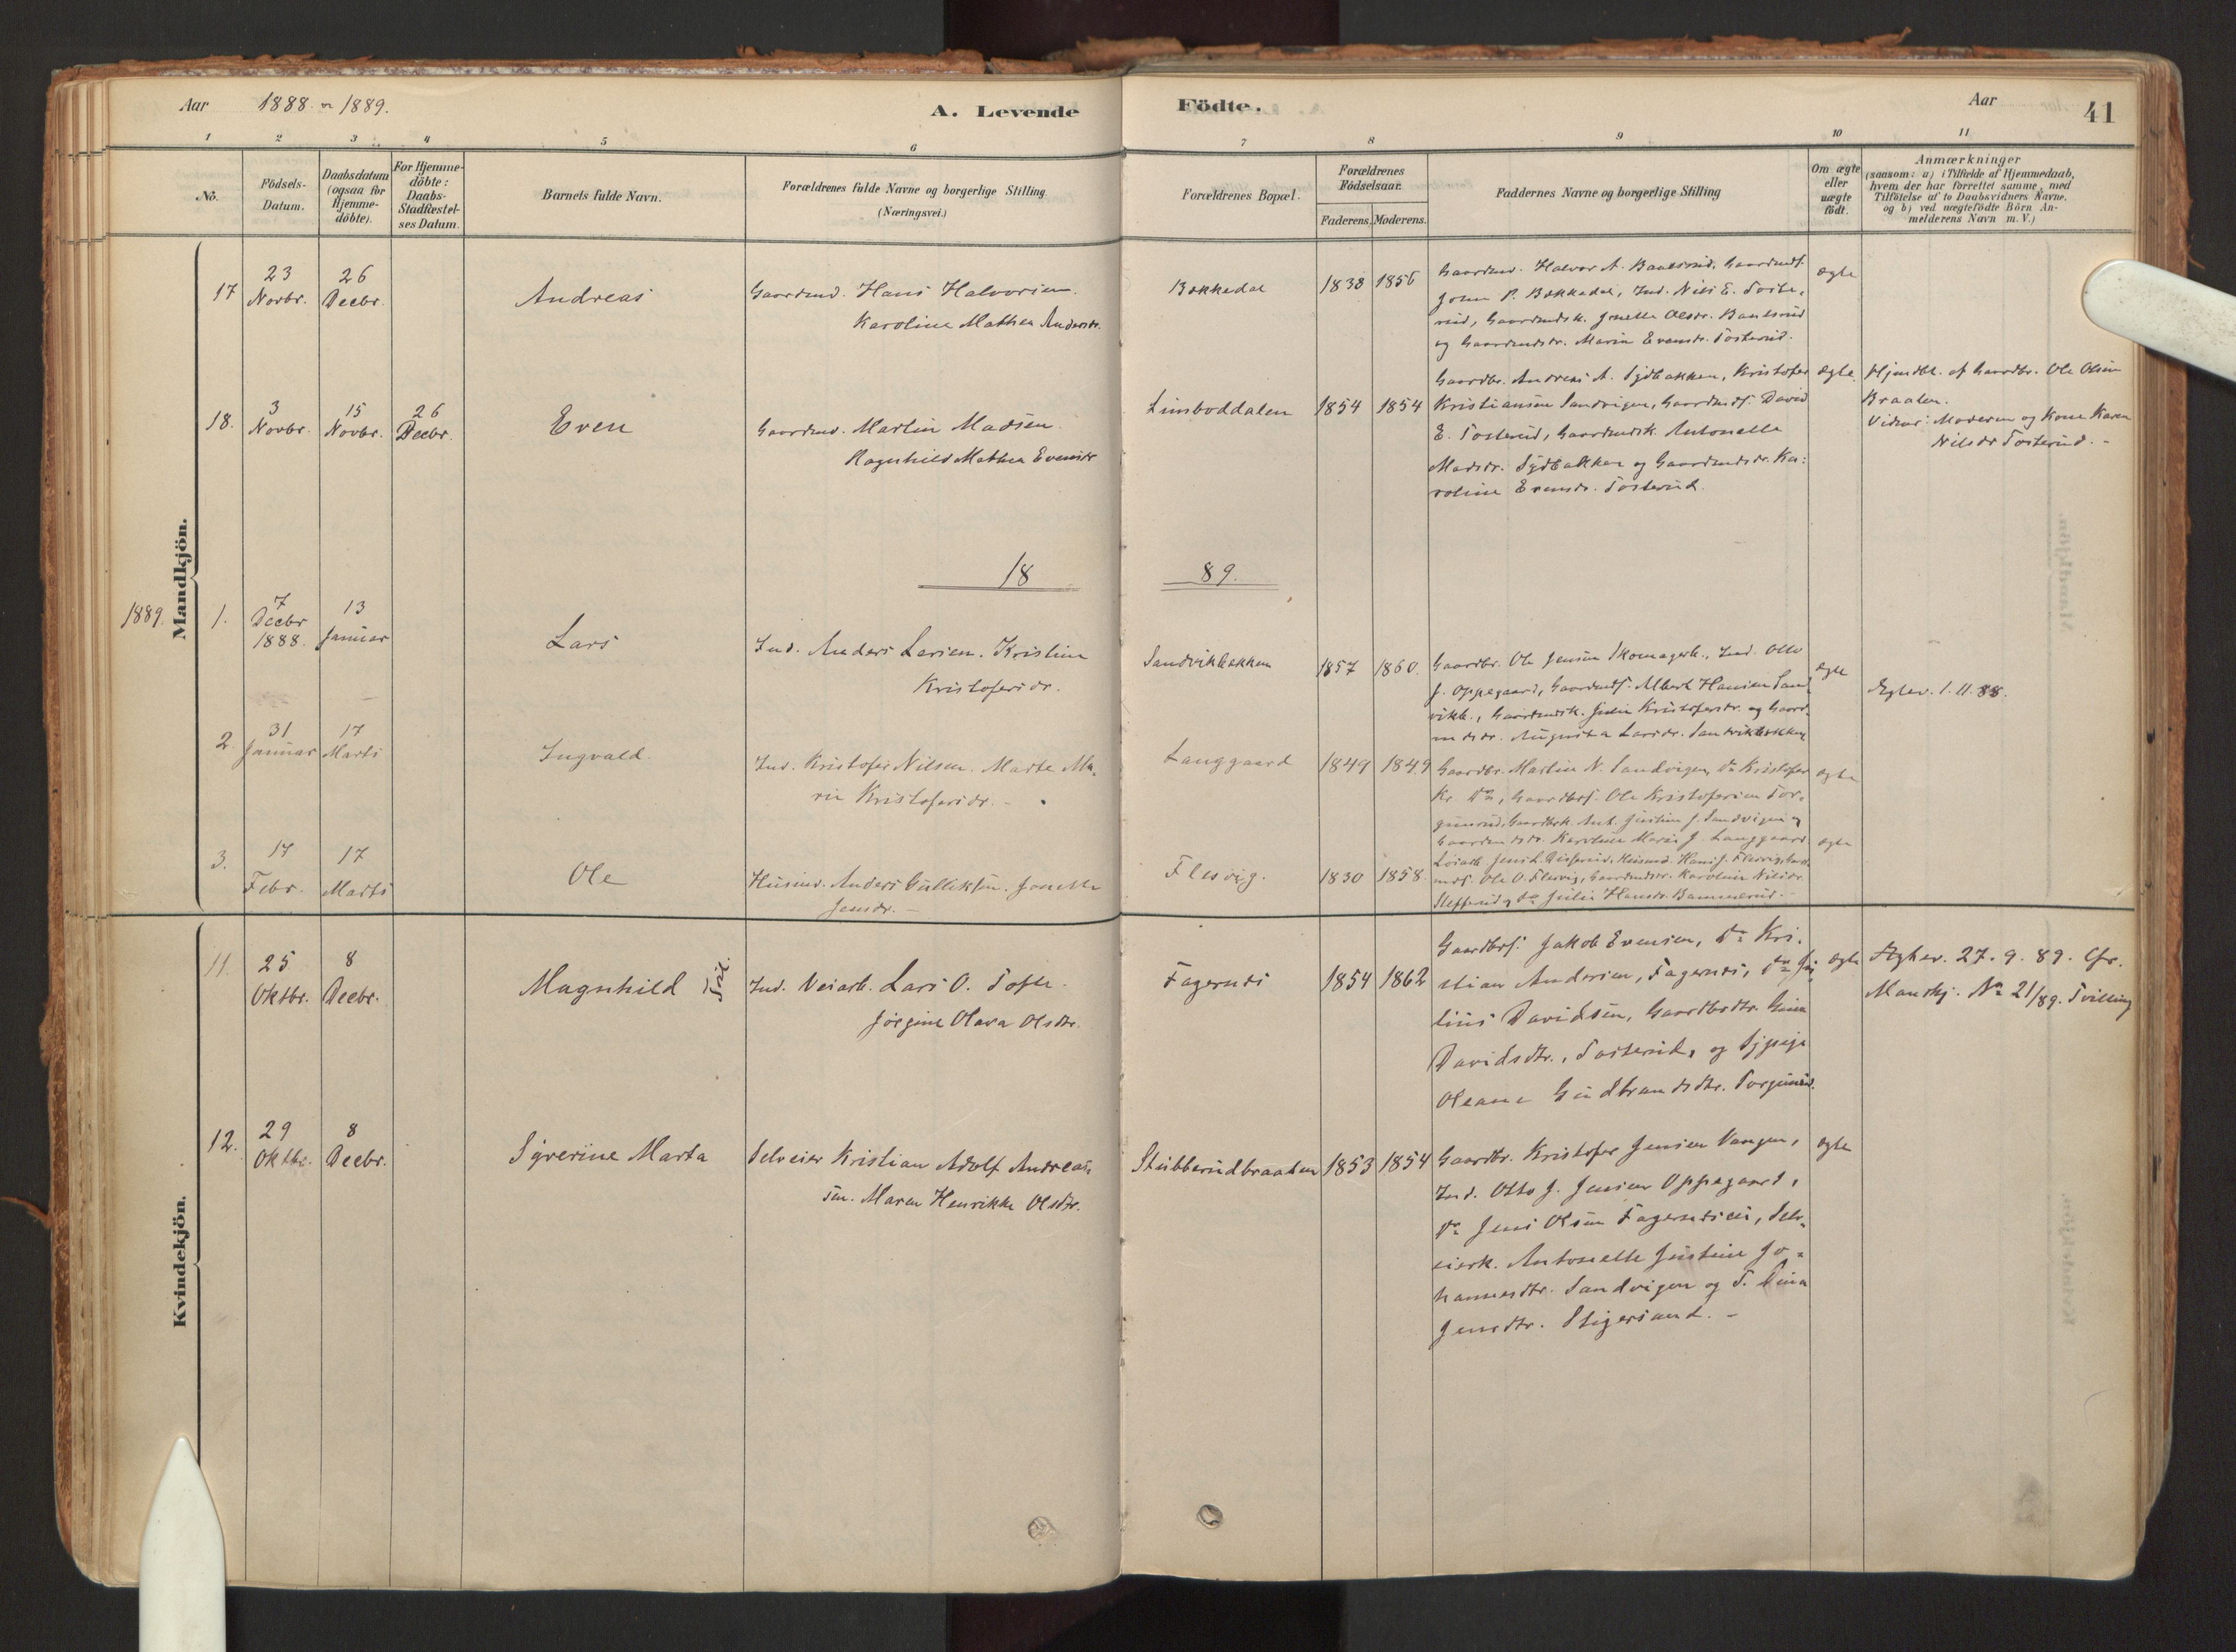 Aar 1888 & 1889.
A. Levende
Födte.
Aar
41
1 2 3 4 5 6 7 8 9 10 11
No.
Födsels-
Datum.
Daabsdatum
(ogsaa for
Hjemme-
döbte).
For Hjemme-
döbte:
Daabs-
Stadfæstel-
ses Datum.
Barnets fulde Navn.
Forældrenes fulde Navne og borgerlige Stilling
(Næringsvei.)
Forældrenes Bopæl.
Forældrenes
Födselsaar.
Faderens. Moderens.
Faddernes Navne og borgerlige Stilling
Om ægte
eller
uægte
födt.
Anmærkninger
(saasom: a) i Tilfælde af Hjemmedaab,
hvem der har forrettet samme, med
Tilföielse af to Daabsvidners Navne.
og b) ved uægtefödte Börn An-
melderens Navn m. V.)
Mandkjön.
17
23
Novbr.
26
Decbr.
Andreas
Gaardmd. Hans Halvorsen.
Karoline Mathea Andersdr.
Bakkedal
1838 1856
Gaardmd. Halvor A. Baalsrud, Gaardmds.
Johan P. Bakkedal, Ind. Nils E. Toste-
rud, Gaardmdsk. Jonette Olsdr. Baalsrud
og Gaardmdsdr. Marin Evensdr. Tosterud.
ægte
18.
3
Novbr.
15
Novbr.
26
Decbr.
Even
Gaardmd. Martin Madsen.
Ragnhild Mathea Evensdr
Limboddalen
1854 1854
Gaardbr. Andreas A. Sydbakken, Kristofer
Kristiansen Sandvigen, Gaardmds. David
E. Tosterud, Gaardmdsk. Antonette
Madsdr. Sydbakken og Gaardmdsdr. Ka-
roline Evensdr. Tosterud.
ægte.
Hjmdbt. af Gaardbr. Ole Olsen
Braaten.
Vidner: Moderen og Kone Karen
Nilsdr Tosterud. -
18
89.
1889.
1.
7
Decbr
1888.
13
Januar
Lars
Ind. Anders Larsen. Kristine
Kristofersdr.
Sandvikbakken
1857 1860.
Gaardbr. Ole Jensen Skomagerb., Ind. Otto
J. Oppegaard, Gaardmds. Albert Hansen Sand-
vikb., Gaardmdsk. Julie Kristofersdr. og Gaard-
mdsdr. Augusta Larsdr. Sandvikbakken
ægte
Ægtev. 1. 11. 88.
2.
31
Januar
17
Marts
Ingvald.
Ind. Kristofer Nilsen. Marte Ma-
rie Kristofersdr. -
Langgaard
1849 1849
Gaardbr. Martin N. Sandvigen, do Kristofer
Kr. do, Gaardbrs. Ole Kristofersen Tor-
gunrud, Gaardbrk. Ant. Justine J. Sandvigen og
Gaardmdsdr. Karoline Marie J. Langgaard
ægte
3.
17
Febr.
17
Marts
Ole
Husmd. Anders Gulliksen. Jonette
Jensdr. -
Flesvig.
1830 1858.
Hans J. Flesvig, Gaard-
mds. Ole O. Flesvig, Gaardmdsdr. Karoline Nilsdr.
Steffenrud og do Julie Hansdr. Bammerud. -
ægte
Kvindekjön.
11.
25
Oktbr.
8
Decbr.
Magnhild
Ind. Veiarb. Lars O. Tofte.
Jørgine Olava Olsdtr.
Fagernes
1854 1862
Gaardbrs. Jakob Evensen, do Kri-
stian Andersen, Fagernes, do Ju-
lius Davidsen, Gaardbrdtr. Gina
Davidsdtr., Tosterud, og Pige
Oleane Gudbrandsdtr. Torgunrud.
ægte
Ægtev. 27. 9. 89. Cfr.
Mandkj. No 21/89. Tvilling
12.
29
Oktbr.
8
Decbr.
Syverine Marta
Selveier Kristian Adolf Andreas-
sen. Maren Henrikke Olsdtr.
Stubberudbraaten
1853 1854
Gaardbr. Kristofer Jensen Vangen,
Ind. Otto J. Jensen Oppegaard,
do Jens Olsen Fagernesei, Selv-
eierk. Antonette Justine Jo-
hannesdtr. Sandvigen og T. Dina
Jensdtr. Stigersand. -
ægte